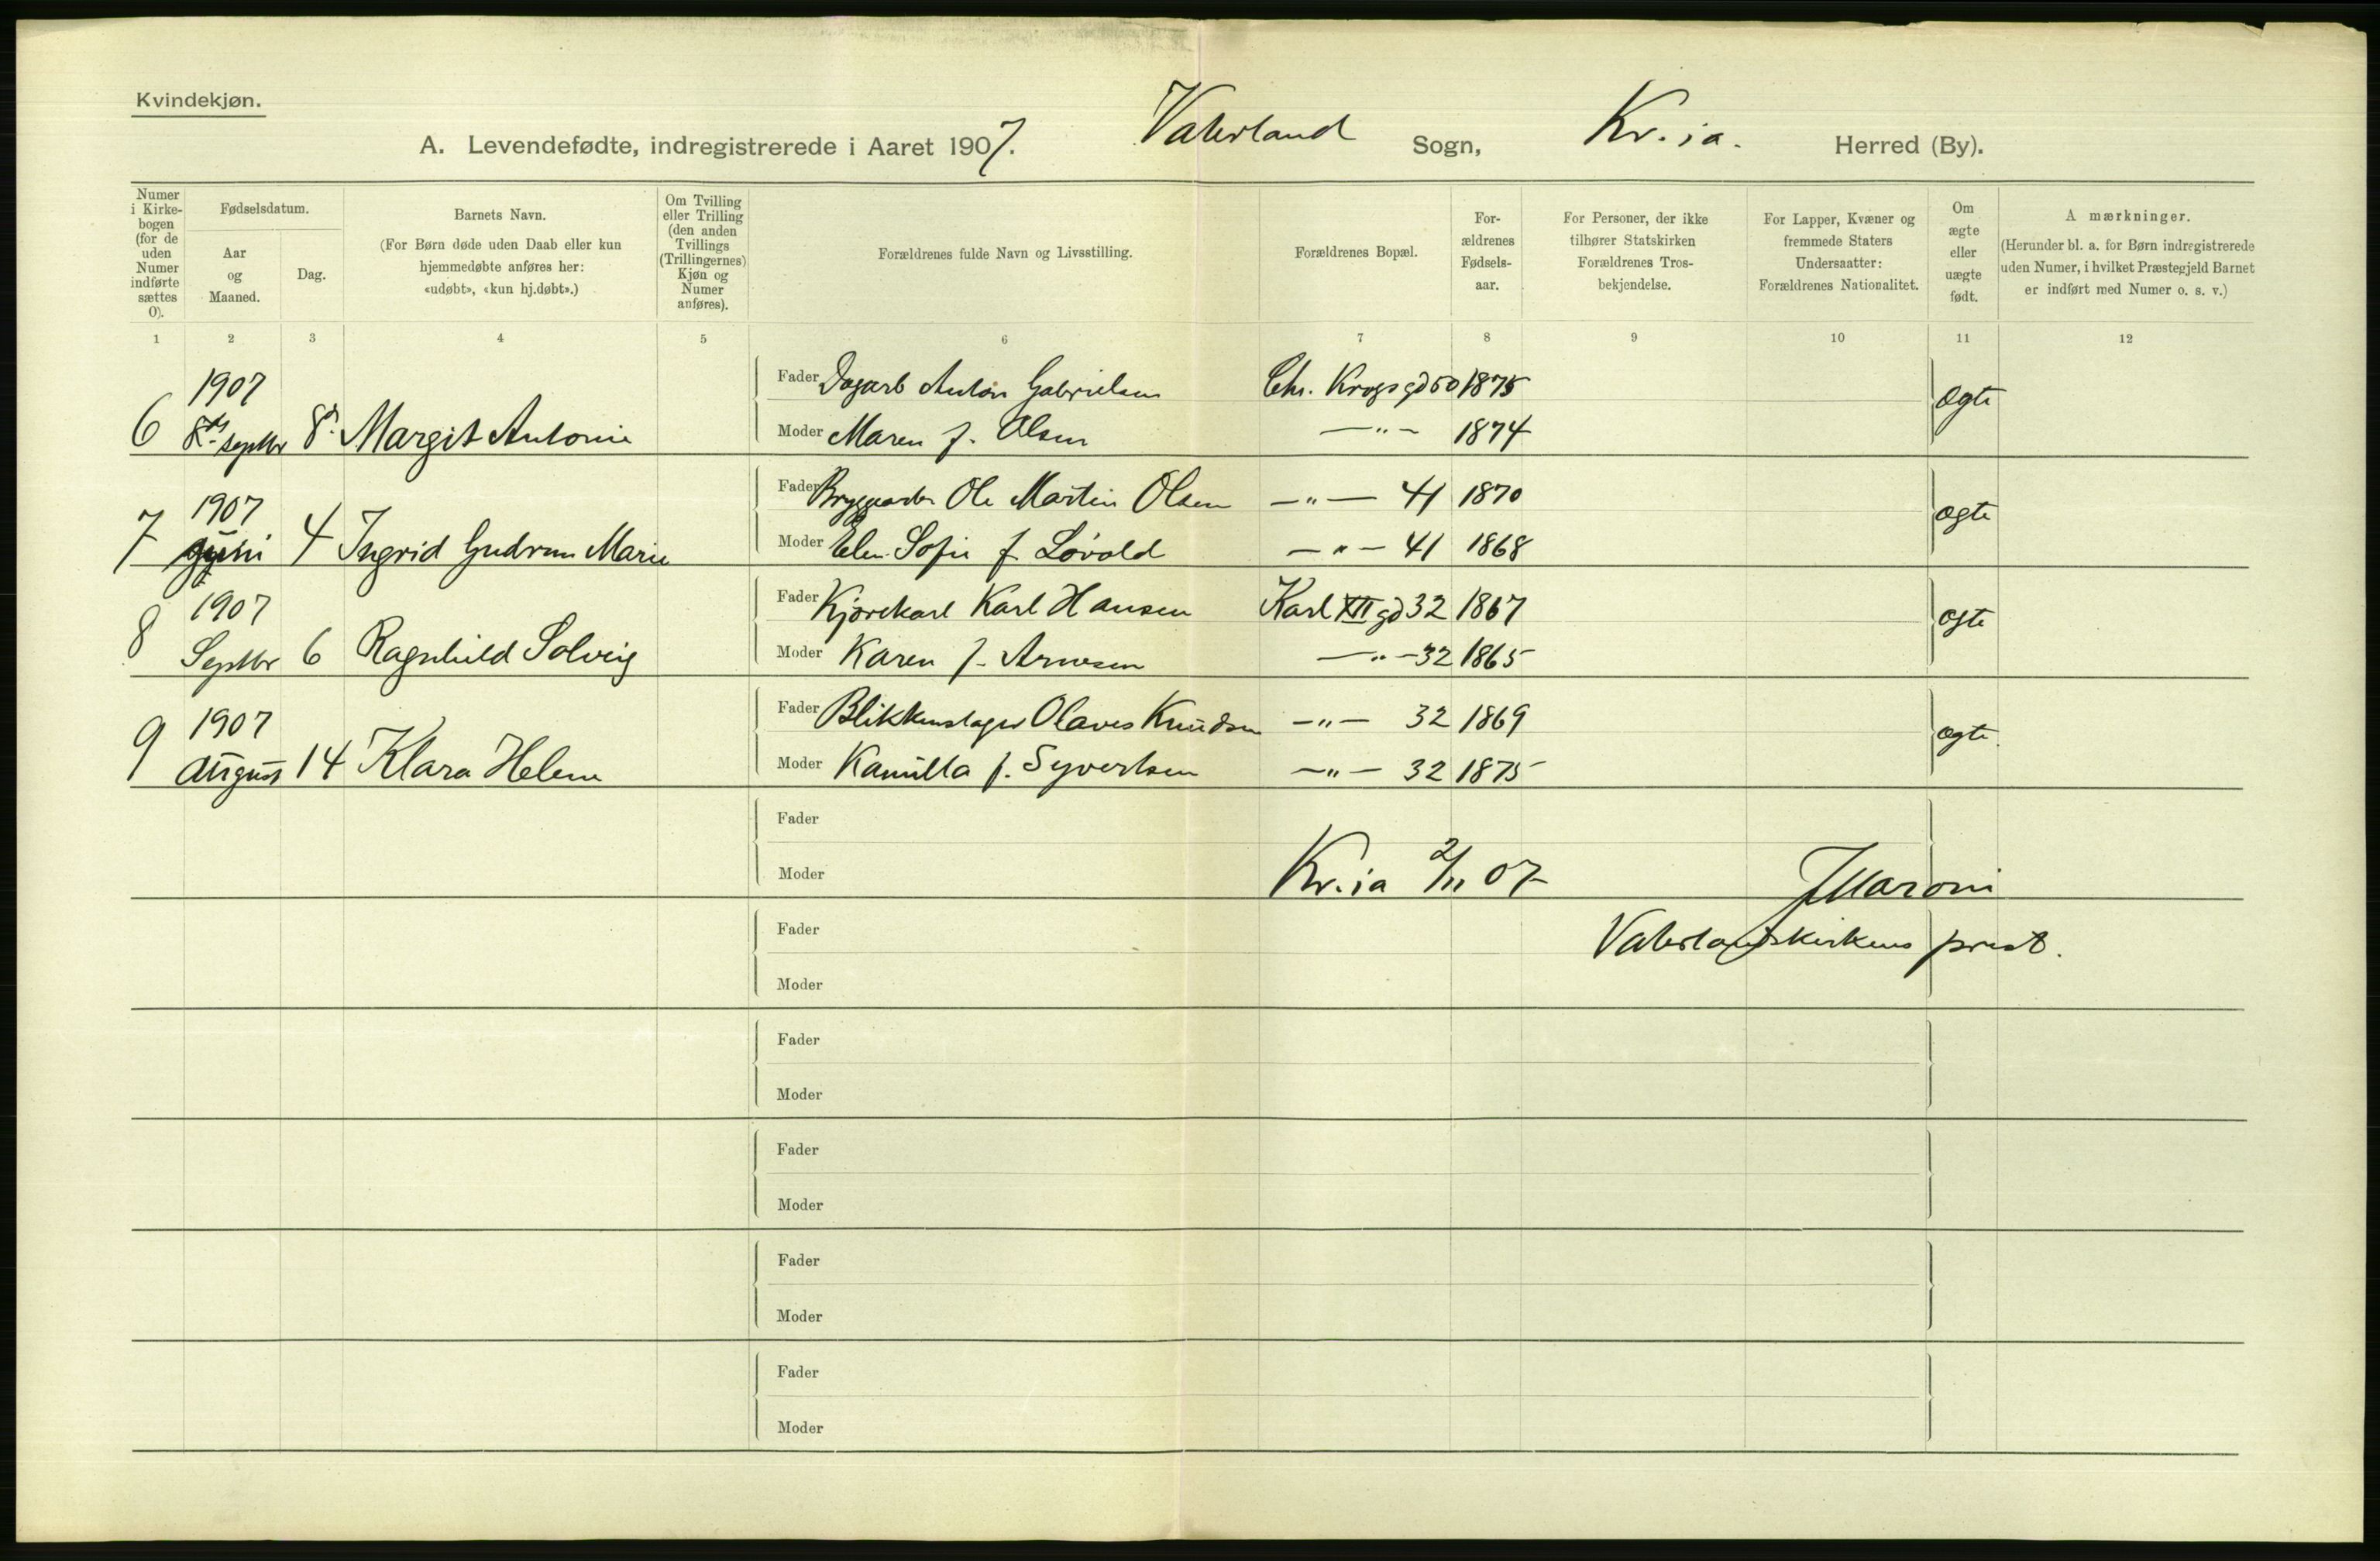 Kvindekjøn.
A. Levendefødte, indregistrerede i Aaret 1907. Vaterland Sogn, Kr.ia. Herred (By).
Numer i Kirke-bogen (for de uden Numer indførte sættes O).
Fødselsdatum.
Aar og Maaned.
Dag.
Barnets Navn.
(For Børn døde uden Daab eller kun hjemmedøbte anføres her: «udøbt», «kun hj.døbt».)
Om Tvilling eller Trilling (den anden Tvillings (Trillingernes) Kjøn og Numer anføres).
Forældrenes fulde Navn og Livsstilling.
Forældrenes Bopæl.
For-ældrenes Fødsels-aar.
For Personer, der ikke tilhører Statskirken Forældrenes Tros-bekjendelse.
For Lapper, Kvæner og fremmede Staters Undersaatter: Forældrenes Nationalitet.
Om ægte eller uægte født.
A mærkninger.
(Herunder bl. a. for Børn indregistrerede uden Numer, i hvilket Præstegjeld Barnet er indført med Numer o. s. v.)
1 2 3 4 5 6 7 8 9 10 11 12
1907 Fader Dagarb Anton Gabrielsen Chr. Krogs gd 50 1875 ægte
6 Septbr 8 Margit Antonie Moder Maren f. Olsen —"— 1874
1907 Fader Bryggearb. Ole Martin Olsen —"— 41 1870 ægte
7 juni 4 Ingrid Gudrun Marie Moder Elen Sofie f. Løvold —"— 41 1868
8 1907 Fader Kjørekarl Karl Hansen Karl XII gd 32 1867 ægte
Septbr 6 Ragnhild Solveig Moder Karen f. Arnesen —"— 32 1865
9 1907 Fader Blikkenslager Olaves Knudsen —"— 32 1869 ægte
august 14 Klara Helene Moder Kamilla f. Syvertsen —"— 32 1875
Fader
Moder Kr.ia 2/11 07 J Maroni
Fader Vaterlandskirkens prest.
Moder
Fader
Moder
Fader
Moder
Fader
Moder
Fader
Moder